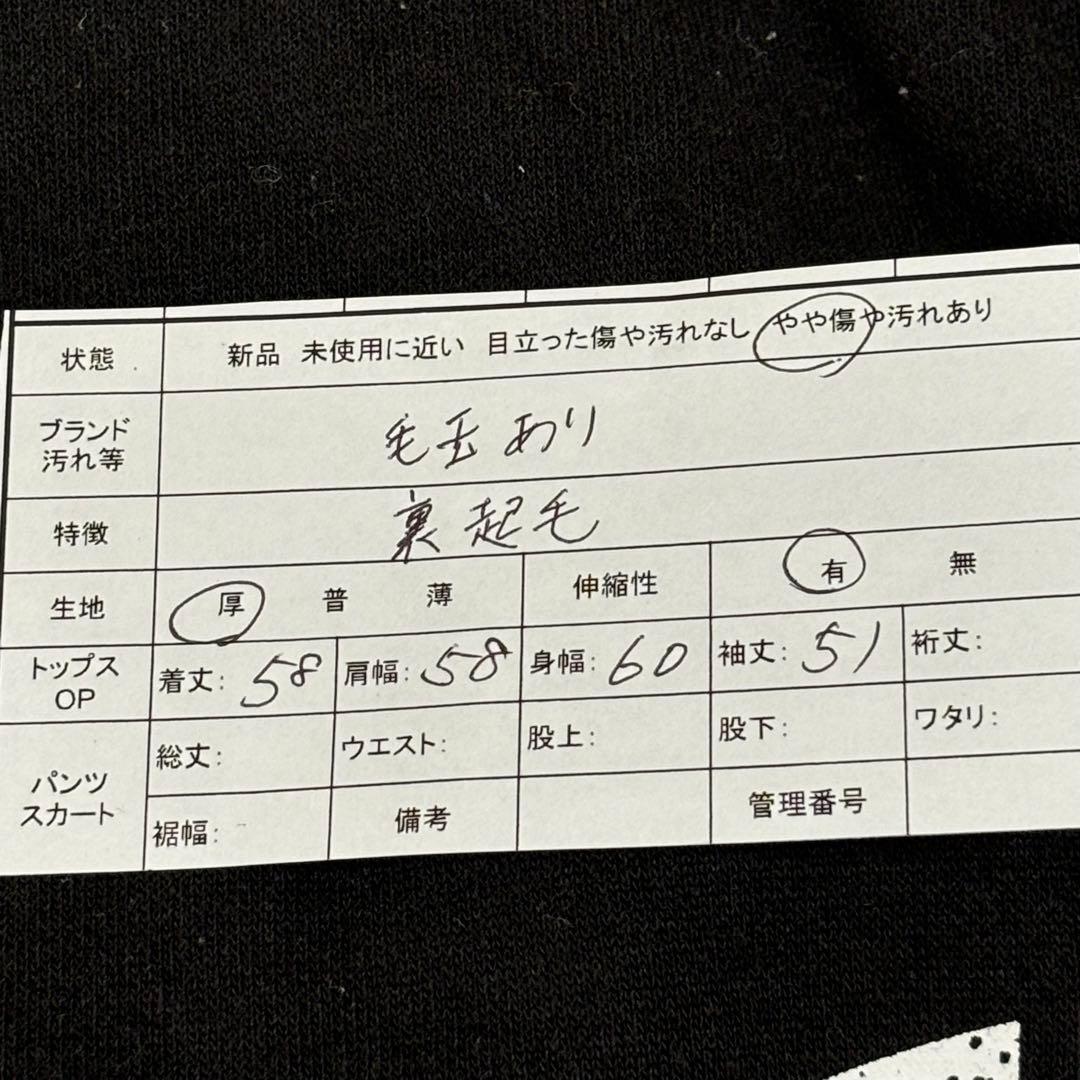 状態 新品 未使用に近い 目立った傷や汚れなし やや傷や汚れあり
ブランド
汚れ等
毛玉あり
特徴 裏起毛
生地 厚 普 薄 伸縮性 有 無
トップス
OP
着丈: 58 肩幅: 58 身幅: 60 袖丈: 51 裄丈:
パンツ
スカート
総丈: ウエスト: 股上: 股下: ワタリ:
裾幅: 備考 管理番号